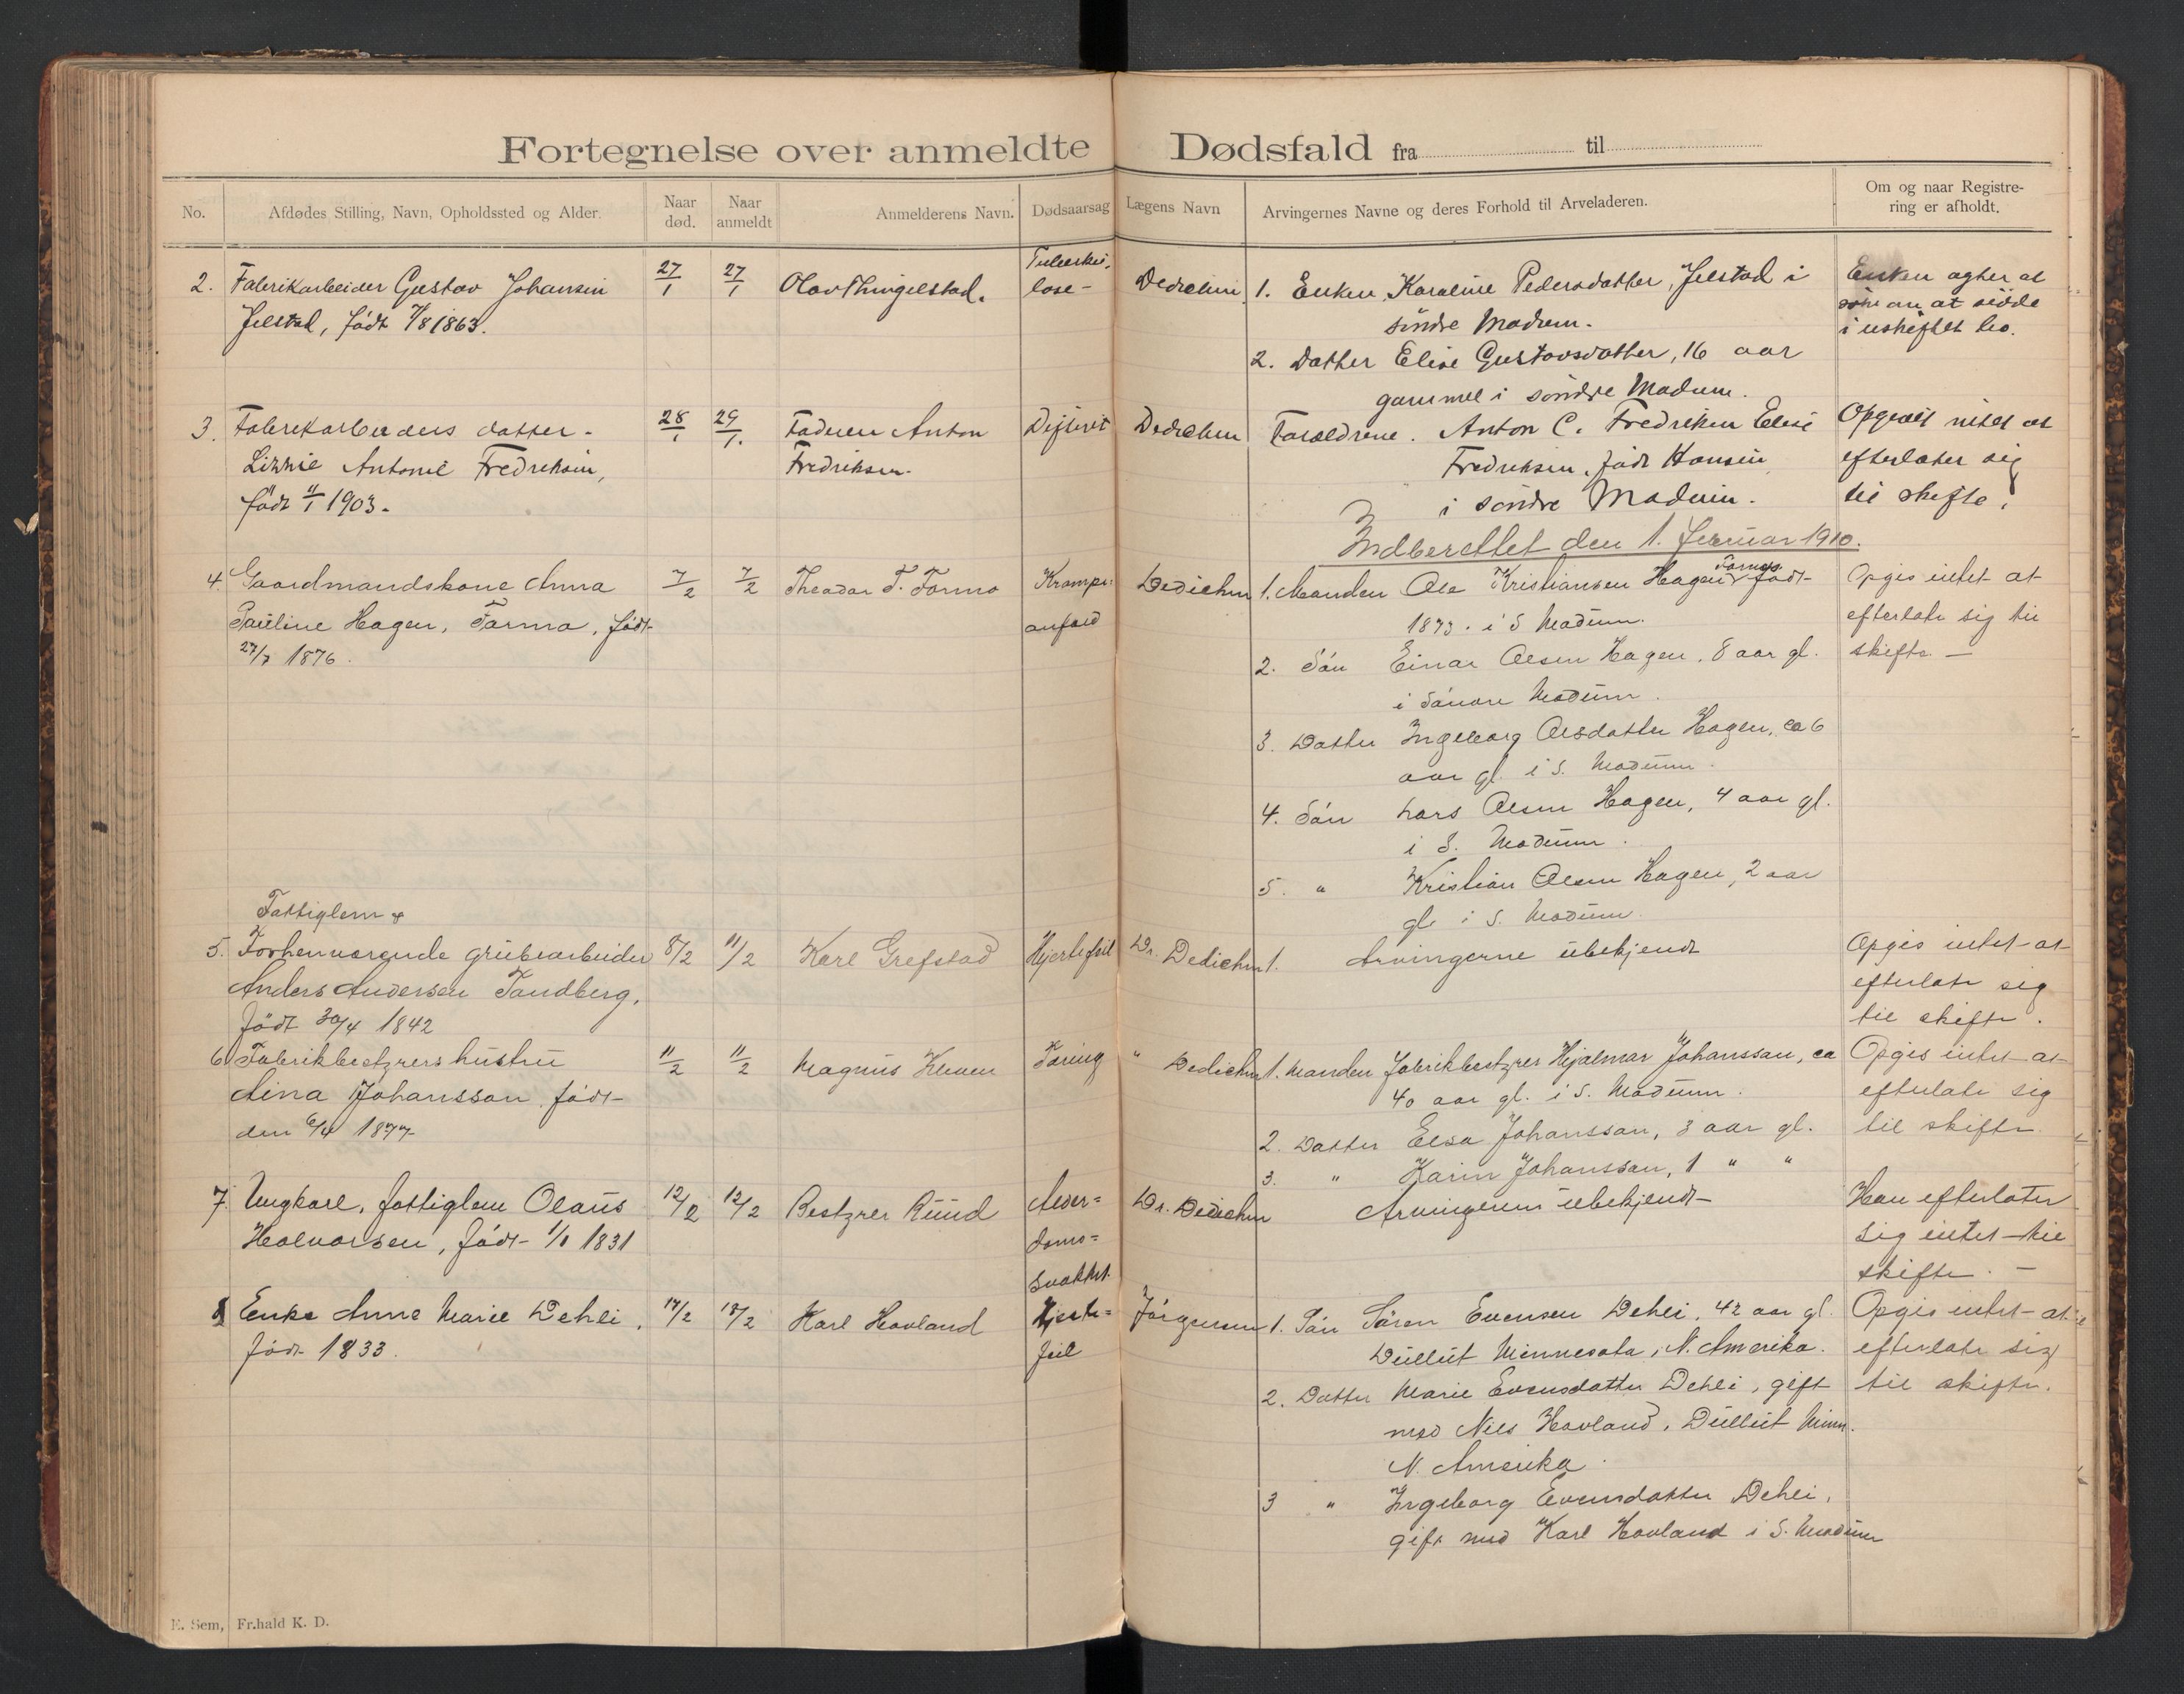 Fortegnelse over anmeldte Dødsfald fra til
No.
Afdødes Stilling, Navn, Opholdssted og Alder.
Naar død.
Naar anmeldt
Anmelderens Navn.
Dødsaarsag
Lægens Navn
Arvingernes Navne og deres Forhold til Arveladeren.
Om og naar Registrering er afholdt.
2. Fabrikarbeider Gustav Johansen
Jelstad, født 7/8 1863.
27/1
27/1
Olav Thingelstad.
Tuberku-
lose-
Dedichen
1. Enken Karoline Pedersdatter, Jelstad i
söndre Modum.
2. Datter Elise Gustavsdatter, 16 aar
gammel i söndre Modum.
Enken agter at
söke om at sidde
i uskiftet bo.
3. Fabrikarbeiders datter-
Lizzie Antonie Fredriksen,
født 11/1 1903.
28/1
29/1.
Faderen Anton
Fredriksen.
Difterit
Dedichen
Foræeldrene. Anton C. Fredriksen Elise
Fredriksen, født Hansen
i söndre Modum.
Opgives intet at
efterlater sig
til skifte.
Indberettet den 1. februar 1910.
4. Gaardmandskone Anna
Pauline Hagen, Formo, født
27/7 1876.
7/2
7/2
Theodor T. Formo
Krampe-
anfald
Dedichen
1. Manden Ole Kristiansen Hagen Formo, født
1873. i S. Modum.
2. Sön Einar Olsen Hagen, 8 aar gl.
i Söndre Modum.
3. Datter Ingeborg Olsdatter Hagen, ca 6
aar gl. i S. Modum.
4. Sön Lars Olsen Hagen, 4 aar gl.
i S. Modum.
5. " Kristian Olsen Hagen, 2 aar
gl. i S. Modum.
Opgis intet at
efterlate sig til
skifte. —
Fattiglem &
5. Forhenværende grubearbeider
Anders Andersen Tandberg,
født 30/4 1842
8/2
11/2
Karl Grefstad
Hjertefeil
Dr. Dedichen
1. Arvingerne ubekjendt
Opgis intet at
efterlate sig
til skifte.
6. Fabrikbestyrers hustru
Aina Johansson, født
den 6/4 1877
11/2
11/2
Magnus Kleven
Tæring
" Dedichen
1. Manden fabrikbestyrer Hjalmar Johansson, ca
40 aar gl. i S. Modum.
2. Datter Elsa Johansson, 3 aar gl.
3. " Karin Johansson, 1 " "
Opgis intet at
efterlate sig
til skifte.
7. Ungkarl, fattiglem Olaus
Halvorsen, født 1/1 1831
12/2
12/2
Bestyrer Ruud
Alder-
doms-
svakhet.
Dr. Dedichen
Arvingerne ubekjendt
Han efterlater
sig intet til
skifte. —
8 Enke Anne Marie Dehli,
født 1833.
17/2
18/2
Karl Hovland
Hjerte-
feil
Jörgensen
1. Sön Sören Evensen Dehli, 42 aar gl.
Dullut Minnesota, N. Amerika.
2. Datter Marie Evensdatter Dehli, gift
med Nils Hovland, Dullut Minn.
N. Amerika.
3 " Ingeborg Evensdatter Dehli,
gift med Karl Hovland i S. Modum
Opgis intet at
efterlate sig
til skifte.
E. Sem, Fr.hald K. D.